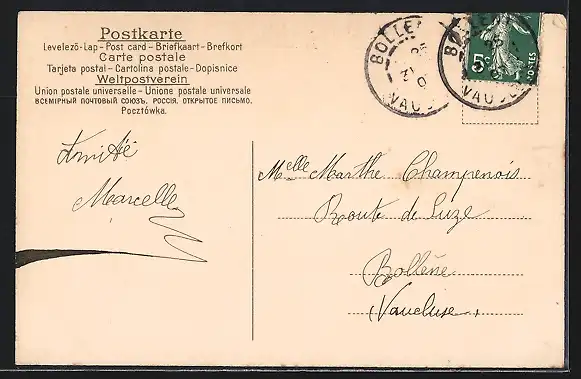 Postkarte
Levelező-Lap - Post card - Briefkaart - Brefkort
Carte postale
Tarjeta postal - Cartolina postale - Dopisnice
Weltpostverein
Union postale universelle - Unione postale universale
ВСЕМІРНЫЙ ПОЧТОВЫЙ СОЮЗЪ. РОССІЯ. ОТКРЫТОЕ ПИСЬМО.
Pocztówka.
BOLLÈNE
VAUCLUSE
5c
POSTES
Amitié
Marcelle
Melle Marthe Champenois
Route de Suze
Bollène
(Vaucluse)